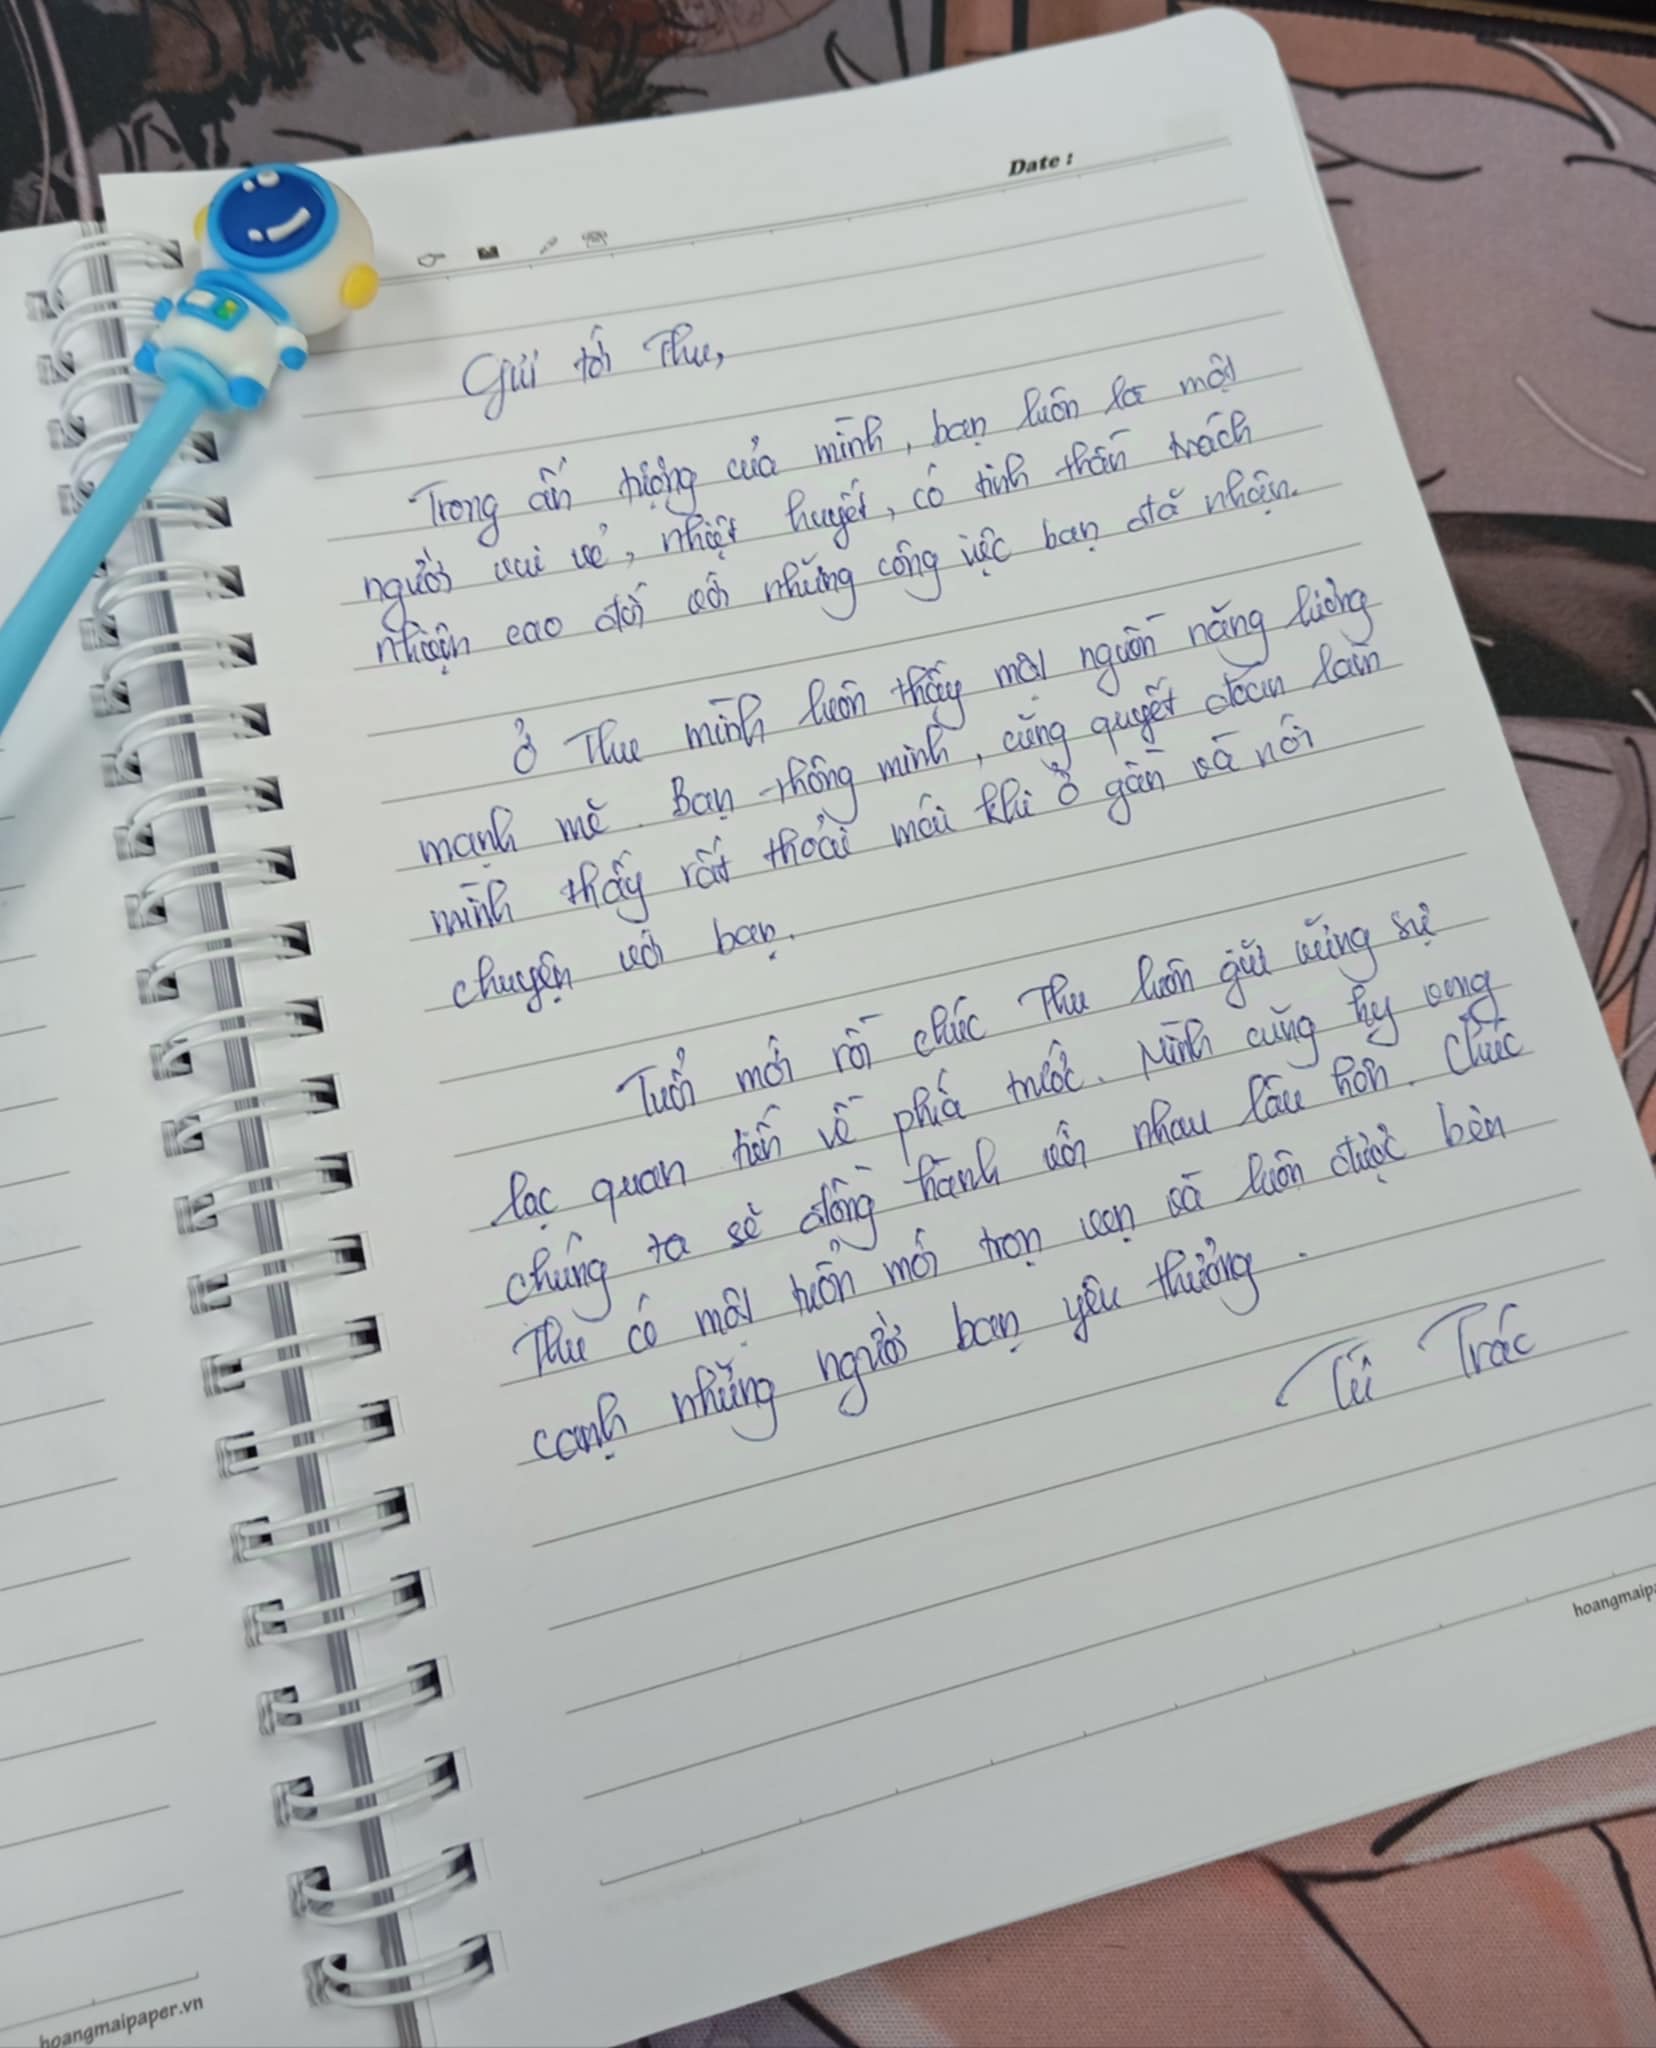 Date :
Gửi tới Thu,
Trong ấn tượng của mình, bạn luôn là một
người vui vẻ, nhiệt huyết, có tinh thần trách
nhiệm cao đối với những công việc bạn đã nhận.
Ở Thu mình luôn thấy một nguồn năng lượng
mạnh mẽ. Bạn thông minh, cũng quyết đoán làm
mình thấy rất thoải mái khi ở gần và nói
chuyện với bạn.
Tuổi mới rồi chúc Thu luôn giữ vững sự
lạc quan tiến về phía trước. Mình cũng hy vọng
chúng ta sẽ đồng hành với nhau lâu hơn. Chúc
Thu có một tuổi mới trọn vẹn và luôn được bên
cạnh những người bạn yêu thương.
Trác
hoangmaipa
hoangmaipaper.vn